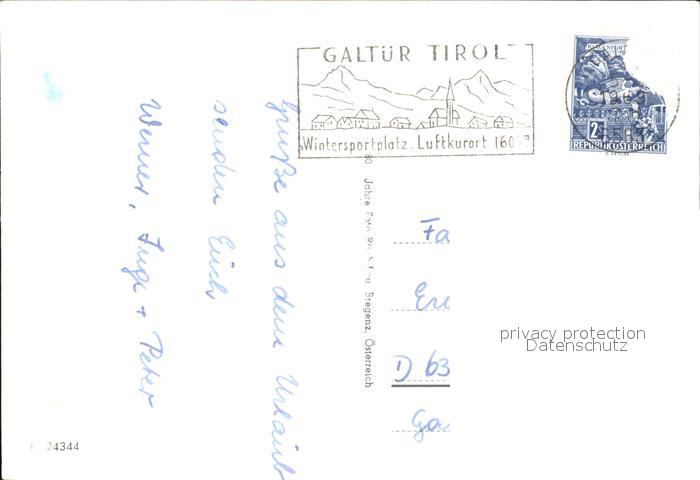 GALTÜR TIROL
Wintersportplatz. Luftkurort
KLAGENFURT
2
REPUBLIK ÖSTERREICH
Grüße aus dem Urlaub
senden Euch
Werner, Inge + Peter
Jahre Foto Bregenz, Österreich
Fa
D 63
Ga
privacy protection
Datenschutz
24344